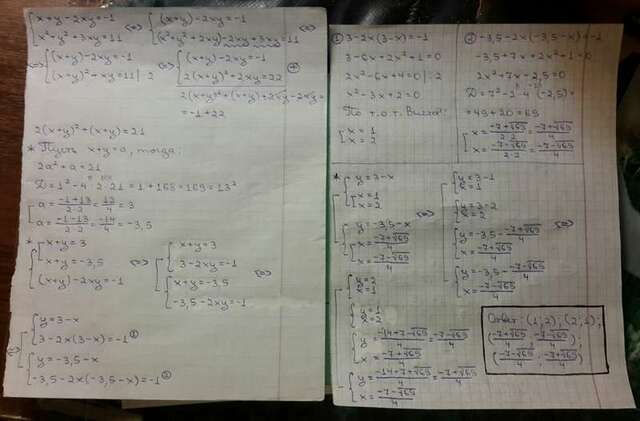 {x+y-2xy=-1 <=> {(x+y)-2xy=-1 <=>
{x²+y²+3xy=11 {(x²+y²+2xy)-2xy+3xy=11
<=> {(x+y)-2xy=-1 <=> {(x+y)-2xy=-1
{(x+y)²+xy=11 |·2 {2(x+y)²+2xy=22 (+)
2(x+y)²+(x+y)+2xy-2xy=
=-1+22
2(x+y)²+(x+y)=21
* Пусть x+y=a, тогда:
2a²+a=21
D=1²-4·2·21=1+168=169=13²
[a=(-1+13)/(2·2)=12/4=3
[a=(-1-13)/(2·2)=-14/4=-3,5
* {[x+y=3
{[x+y=-3,5 <=>
{(x+y)-2xy=-1
[{x+y=3
[{3-2xy=-1
[{x+y=-3,5 <=>
[{-3,5-2xy=-1
<=> [{y=3-x
[{3-2x(3-x)=-1 ①
[{y=-3,5-x
[{-3,5-2x(-3,5-x)=-1 ②
① 3-2x(3-x)=-1
3-6x+2x²+1=0
2x²-6x+4=0 |:2
x²-3x+2=0
По т.о.т. Виета:
[x=1
[x=2
② -3,5-2x(-3,5-x)=-1
-3,5+7x+2x²+1=0
2x²+7x-2,5=0
D=7²-2·4·(-2,5)=
=49+20=69
[x=(-7+√69)/(2·2)=(-7+√69)/4
[x=(-7-√69)/(2·2)=(-7-√69)/4
* [{y=3-x
[{[x=1
[{[x=2
[{y=-3,5-x <=>
[{[x=(-7+√69)/4
[{[x=(-7-√69)/4
[{y=3-1
[{x=1
[{y=3-2
[{x=2
[{y=-3,5-(-7+√69)/4 <=>
[{x=(-7+√69)/4
[{y=-3,5-(-7-√69)/4
[{x=(-7-√69)/4
[{y=2
[{x=1
[{y=1
[{x=2
[{y=(-14+7-√69)/4=(-7-√69)/4
[{x=(-7+√69)/4
[{y=(-14+7+√69)/4=(-7+√69)/4
[{x=(-7-√69)/4
Ответ: (1;2); (2;1);
((-7+√69)/4; (-7-√69)/4);
((-7-√69)/4; (-7+√69)/4)